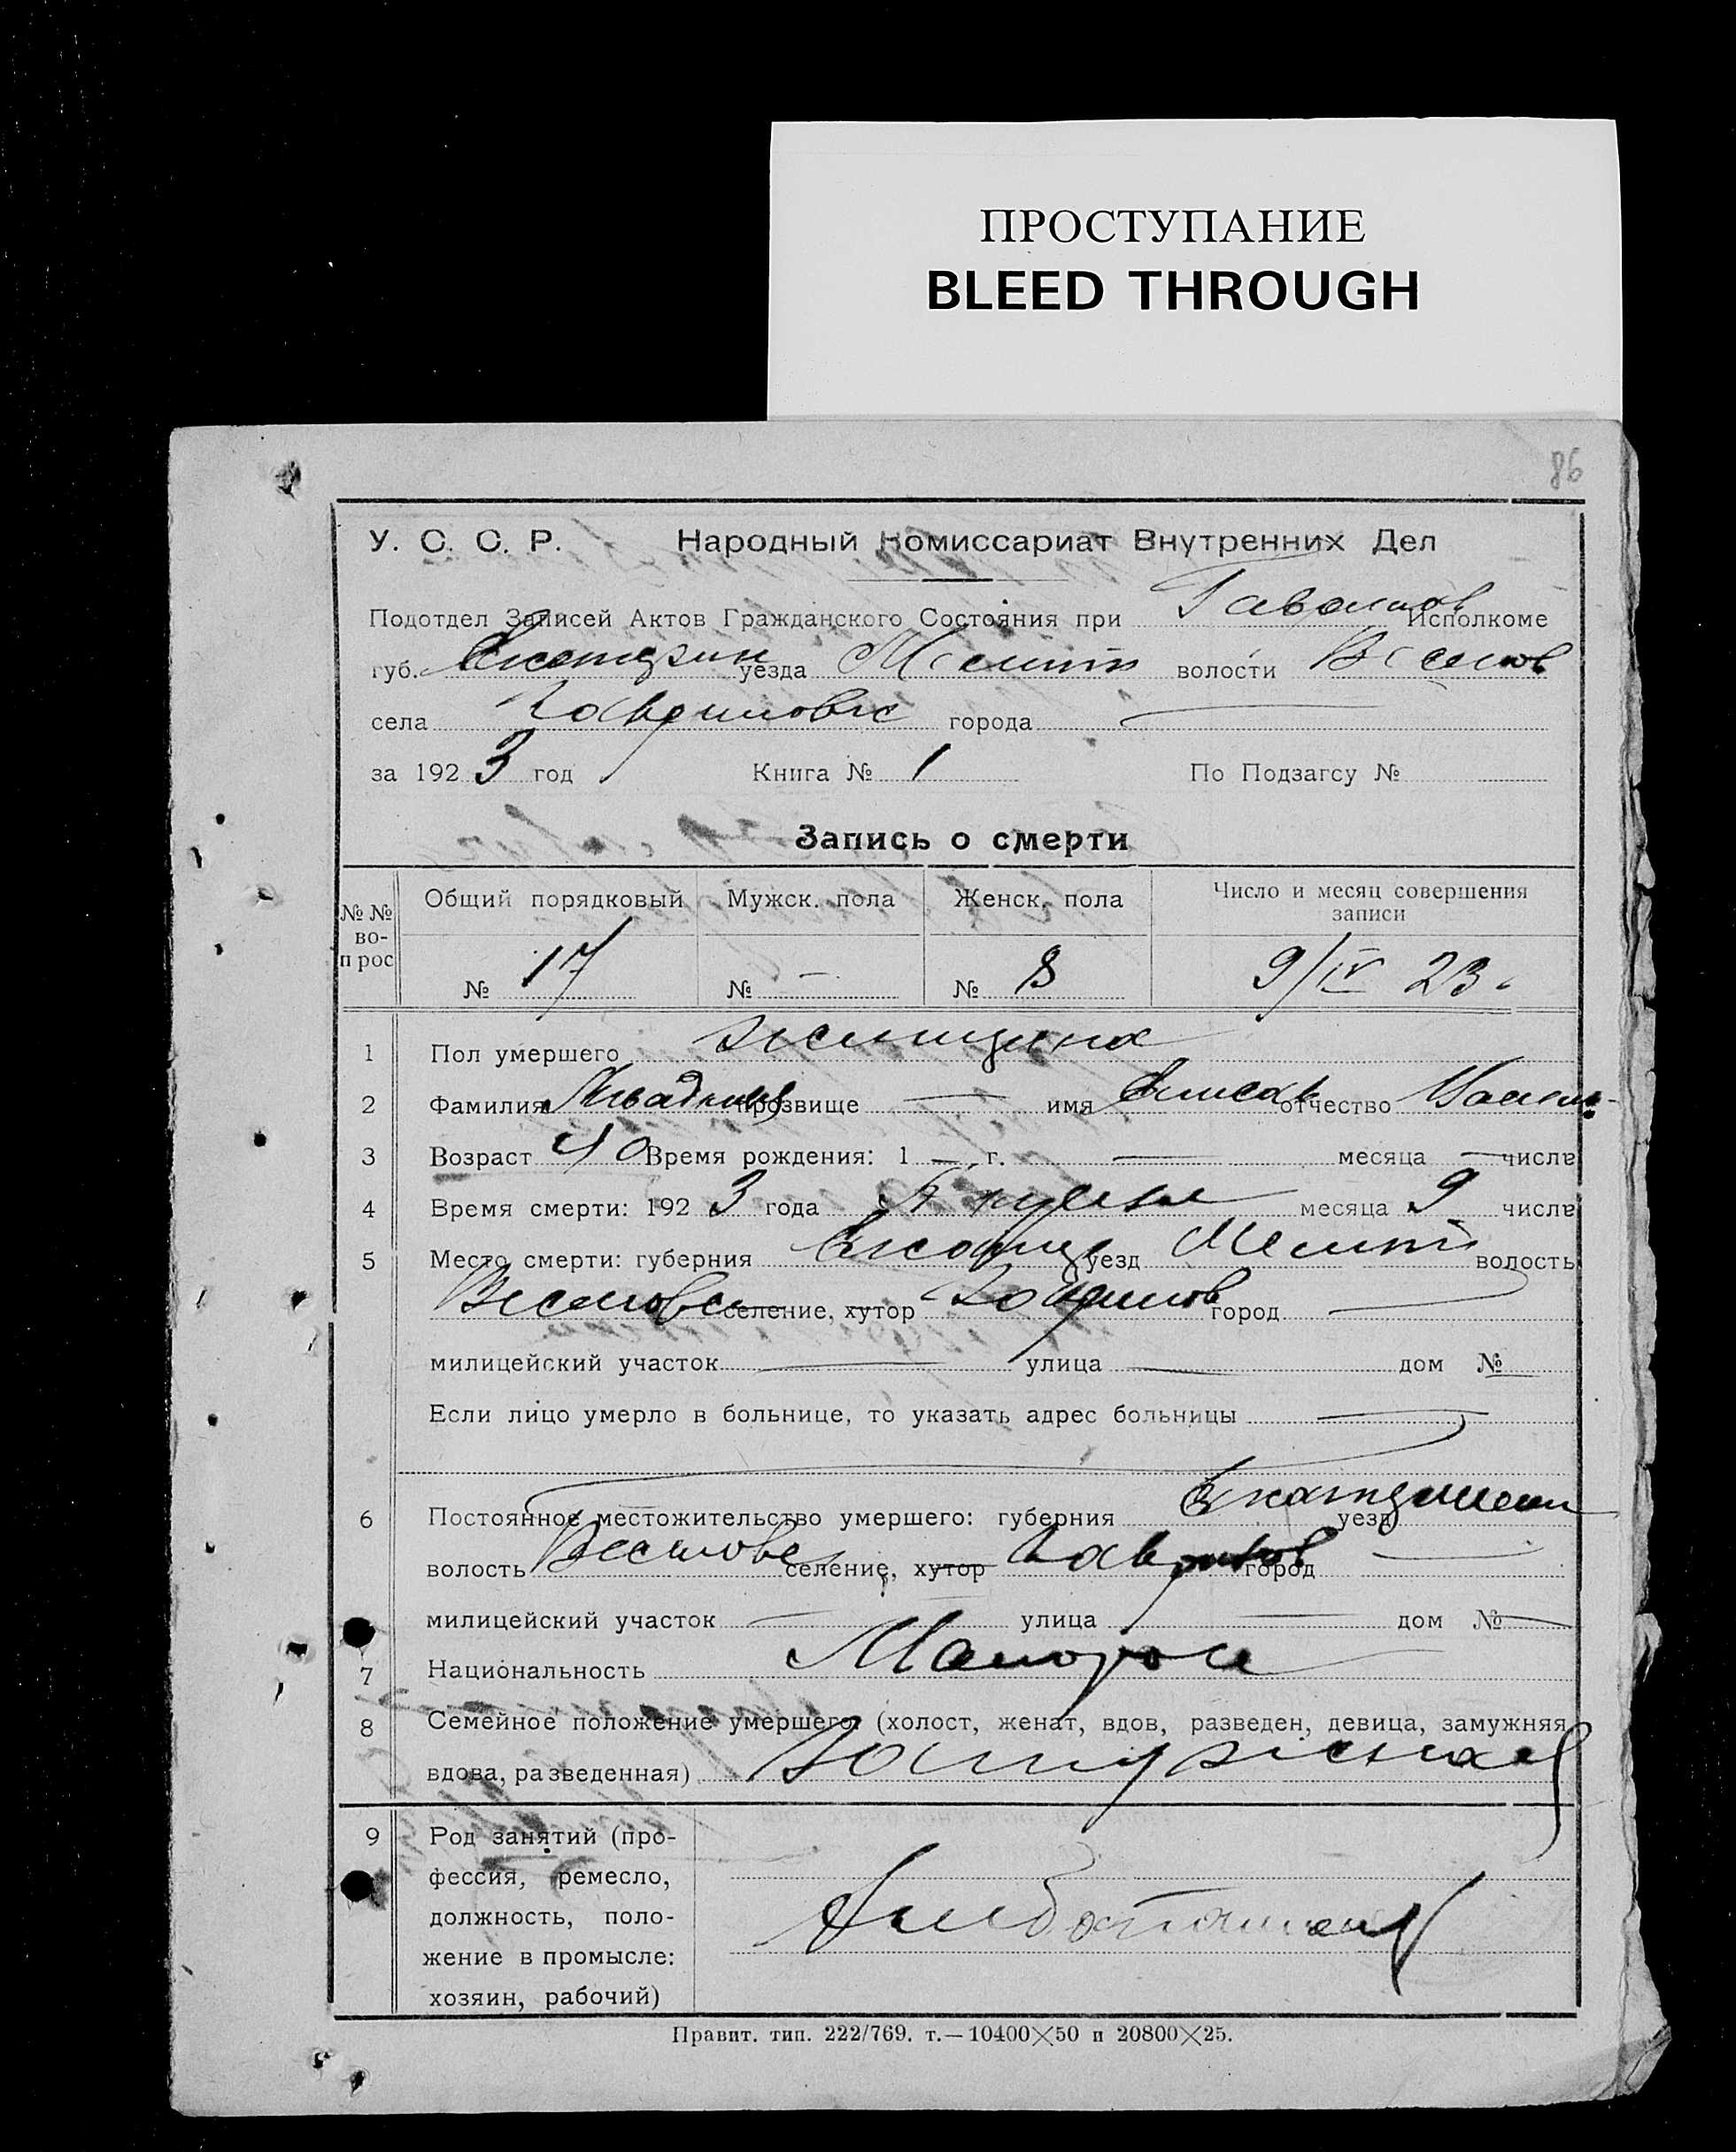 ПРОСТУПАНИЕ
BLEED THROUGH
86
У. С. С. Р. Народный Комиссариат Внутренних Дел
Подотдел Записей Актов Гражданского Состояния при Исполкоме
губ. Екатерин уезда Мелит волости Веселов
села Гавриловк города
за 1923 год Книга № 1 По Подзагсу №
Запись о смерти
№ № во-прос Общий порядковый Мужск. пола Женск. пола Число и месяц совершения записи
№ 17 № — № 8 9/IV 23
1 Пол умершего женщина
2 Фамилия прозвище — имя отчество
3 Возраст 40 Время рождения: 1 — г. — месяца — числа
4 Время смерти: 1923 года Апреля месяца 9 числа
5 Место смерти: губерния Екатер уезд Мелит волость
Веселовс селение, хутор Гаврилов город —
милицейский участок — улица — дом №
Если лицо умерло в больнице, то указать адрес больницы —
6 Постоянное местожительство умершего: губерния уезд
волость Веселовс селение, хутор Гаврилов город —
милицейский участок — улица — дом № —
7 Национальность Малорос
8 Семейное положение умершего: (холост, женат, вдов, разведен, девица, замужняя
вдова, разведенная) Замужная
9 Род занятий (про-
фессия, ремесло,
должность, поло-
жение в промысле:
хозяин, рабочий)
Правит. тип. 222/769. т.—10400×50 и 20800×25.